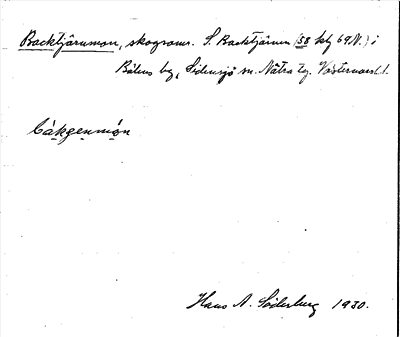 Backtjärnmon, skogsomr. S. Backtjärnen (58 kbl 69N.) i
Bålens by, Sidensjö sn. Nätra tg. Västernorrl. l.
bákgenmón
Hans A. Söderberg 1930.